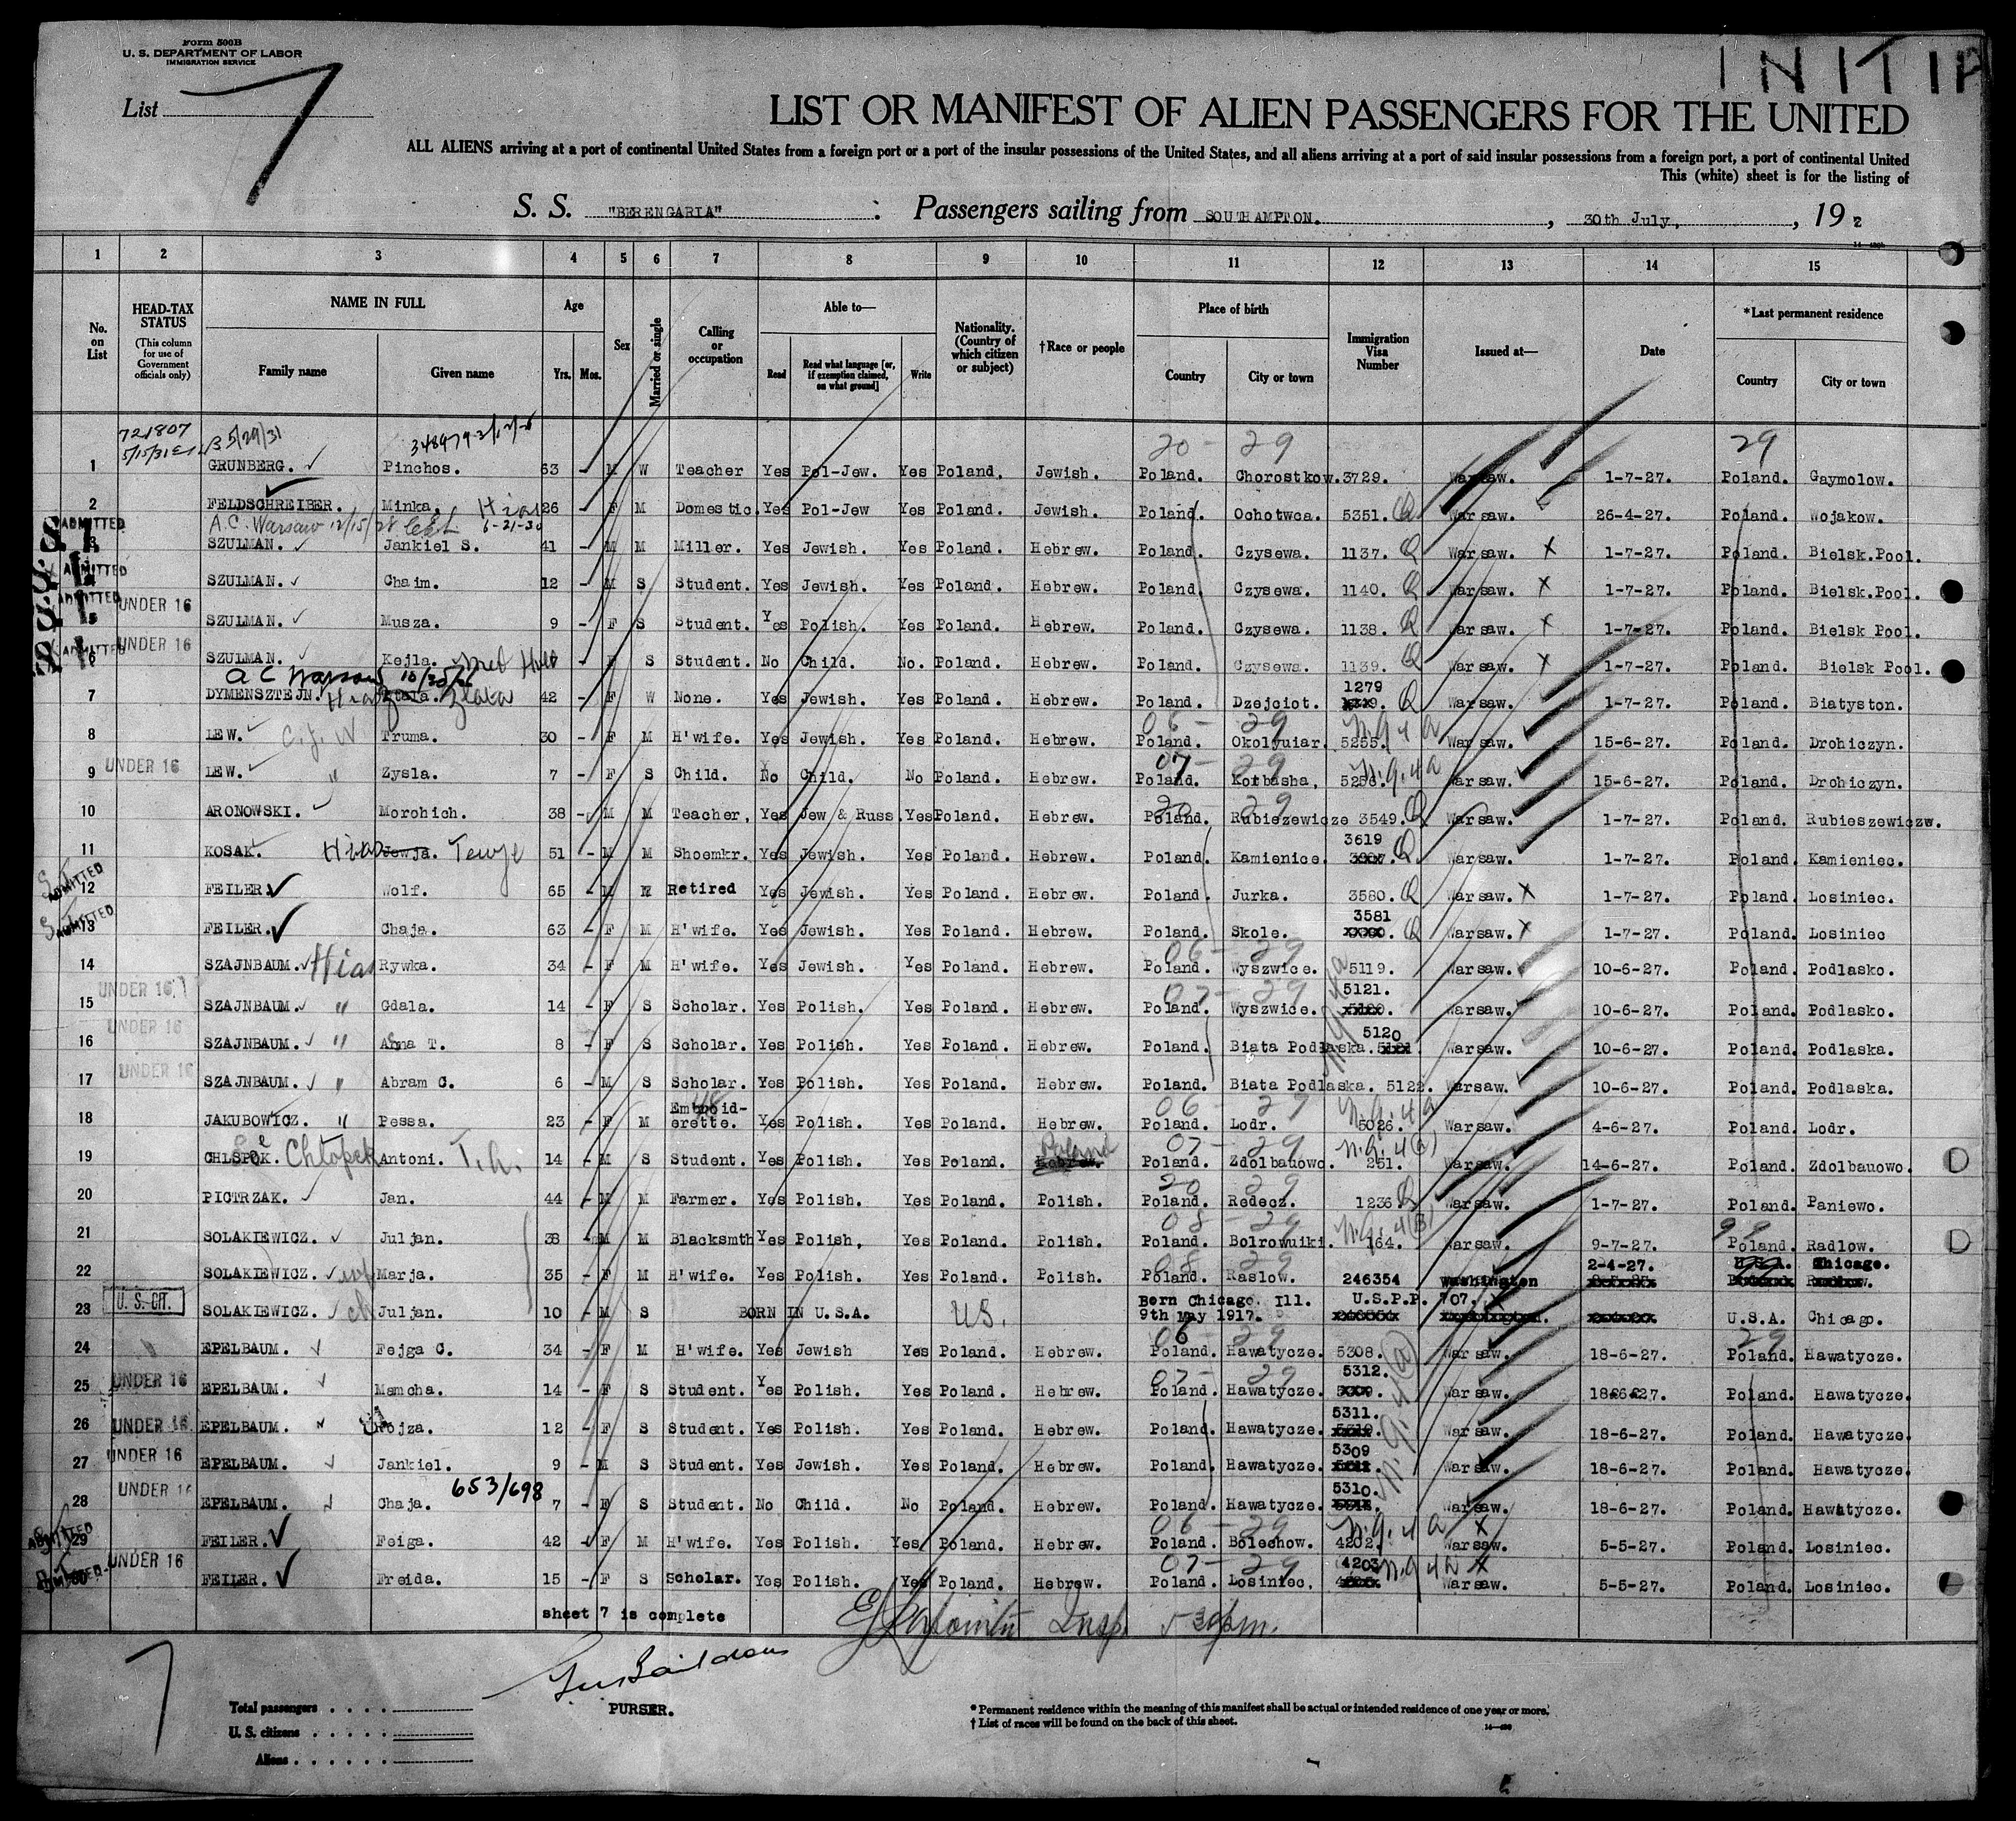 Form 500B
U. S. DEPARTMENT OF LABOR
IMMIGRATION SERVICE
INITIA
List 7
LIST OR MANIFEST OF ALIEN PASSENGERS FOR THE UNITED
ALL ALIENS arriving at a port of continental United States from a foreign port or a port of the insular possessions of the United States, and all aliens arriving at a port of said insular possessions from a foreign port, a port of continental United
This (white) sheet is for the listing of
S. S. "BERENGARIA" Passengers sailing from SOUTHAMPTON. , 30th July, , 192
1 2 3 4 5 6 7 8 9 10 11 12 13 14 15
No. on List HEAD-TAX STATUS (This column for use of Government officials only) NAME IN FULL Family name Given name Age Yrs. Mos. Sex Married or single Calling or occupation Able to— Read Read what language [or, if exemption claimed, on what ground] Write Nationality. (Country of which citizen or subject) †Race or people Place of birth Country City or town Immigration Visa Number Issued at— Date *Last permanent residence Country City or town
721807 5/29/31 20 - 29 29
1 GRUNBERG. Pinchos. 63 - M W Teacher Yes Pol-Jew. Yes Poland. Jewish. Poland. Chorostkow. 3729. Warsaw. 1-7-27. Poland. Gaymolow.
2 FELDSCHREIBER. Minka. Hias 26 - F M Domestic. Yes Pol-Jew Yes Poland. Jewish. Poland. Ochotwca. 5351. Q Warsaw. 26-4-27. Poland. Wojakow.
ADMITTED A.C. Warsaw 12/15/28 6-21-30
3 SZULMAN. Jankiel S. 41 - M M Miller. Yes Jewish. Yes Poland. Hebrew. Poland. Czysewa. 1137. Q Warsaw. X 1-7-27. Poland. Bielsk.Pool.
ADMITTED SZULMAN. Chaim. 12 - M S Student. Yes Jewish. Yes Poland. Hebrew. Poland. Czysewa. 1140. Q Warsaw. X 1-7-27. Poland. Bielsk.Pool.
ADMITTED 5 UNDER 16 SZULMAN. Musza. 9 - F S Student. Yes Polish. Yes Poland. Hebrew. Poland. Czysewa. 1138. Q Warsaw. X 1-7-27. Poland. Bielsk Pool.
ADMITTED 6 UNDER 16 SZULMAN. Kejla. - F S Student. No Child. No. Poland. Hebrew. Poland. Czysewa. 1139. Q Warsaw. X 1-7-27. Poland. Bielsk Pool.
A C Warsaw 1279
7 DYMENSZTEJN. Hias Zlata 42 - F W None. Yes Jewish. Yes Poland. Hebrew. Poland. Dzejciot. Q Warsaw. 1-7-27. Poland. Biatyston.
06 - 29 n.q 4 a
8 LEW. Truma. 30 - F M H'wife. Yes Jewish. Yes Poland. Hebrew. Poland. Okolyuiar. 5255. Warsaw. 15-6-27. Poland. Drohiczyn.
07 - 29 n.q.4a
9 UNDER 16 LEW. " Zysla. 7 - F S Child. No Child. No Poland. Hebrew. Poland. Korbasha. 5256. Warsaw. 15-6-27. Poland. Drohiczyn.
20 - 29
10 ARONOWSKI. Morohich. 38 - M M Teacher. Yes Jew & Russ. Yes Poland. Hebrew. Poland. Rubiezewicze 3549. Q Warsaw. 1-7-27. Poland. Rubieszewiczw.
3619
11 KOSAK. Hias Jewja. Tewje 51 - M M Shoemkr. Yes Jewish. Yes Poland. Hebrew. Poland. Kamienice. Q Warsaw. 1-7-27. Poland. Kamieniec.
ADMITTED
12 FEILER. Wolf. 65 - M M Retired Yes Jewish. Yes Poland. Hebrew. Poland. Jurka. 3580. Q Warsaw. X 1-7-27. Poland. Losiniec.
ADMITTED 3581
13 FEILER. Chaja. 63 - F M H'wife. Yes Jewish. Yes Poland. Hebrew. Poland. Skole. Q Warsaw. X 1-7-27. Poland. Losiniec
06 - 29
14 SZAJNBAUM. Hias Rywka. 34 - F M H'wife. Yes Jewish. Yes Poland. Hebrew. Poland. Wyszwice. 5119. Warsaw. 10-6-27. Poland. Podlasko.
UNDER 16 07 - 29 5121.
15 SZAJNBAUM. " Gdala. 14 - F S Scholar. Yes Polish. Yes Poland. Hebrew. Poland. Wyszwice. Warsaw. 10-6-27. Poland. Podlasko.
UNDER 16 5120
16 SZAJNBAUM. " T. 8 - F S Scholar. Yes Polish. Yes Poland. Hebrew. Poland. Biata Podlaska. Warsaw. 10-6-27. Poland. Podlaska.
UNDER 16
17 SZAJNBAUM. " Abram C. 6 - M S Scholar. Yes Polish. Yes Poland. Hebrew. Poland. Biata Podlaska. 5122. Warsaw. 10-6-27. Poland. Podlaska.
06 - 29 n.q.4a
18 JAKUBOWICZ. " Pessa. 23 - F M Embroid-erette. Yes Polish. Yes Poland. Hebrew. Poland. Lodr. 5026. Warsaw. 4-6-27. Poland. Lodr.
Poland 07 - 29 n.q.4(a)
19 Chlopek Antoni. 14 - M S Student. Yes Polish. Yes Poland. Hebrew. Poland. Zdolbauowo. 251. Warsaw. 14-6-27. Poland. Zdolbauowo.
20 - 29
20 PICTRZAK. Jan. 44 - M M Farmer. Yes Polish. Yes Poland. Polish. Poland. Redecz. 1236 Q Warsaw. 1-7-27. Poland. Paniewo.
08 - 29 n.q.4(B)
21 SOLAKIEWICZ. Juljan. 38 - M M Blacksmth Yes Polish. Yes Poland. Polish. Poland. Bolrowuiki. 164. Warsaw. 9-7-27. Poland. Radlow.
08 - 29 2-4-27. U.S.A. Chicago.
22 SOLAKIEWICZ. wf Marja. 35 - F M H'wife. Yes Polish. Yes Poland. Polish. Poland. Raslow. 246354 Washington
U. S. CIT. Born Chicago. Ill. U.S.P.P. 707. X
23 SOLAKIEWICZ. ch Juljan. 10 - M S BORN IN U.S.A. U.S. 9th May 1917. U.S.A. Chicago.
06 - 29 29
24 EPELBAUM. Fejga C. 34 - F M H'wife. Yes Jewish Yes Poland. Hebrew. Poland. Hawatycze. 5308. Warsaw. 18-6-27. Poland. Hawatycze.
UNDER 16 07 - 29 5312.
25 EPELBAUM. Mamcha. 14 - F S Student. Yes Polish. Yes Poland. Hebrew. Poland. Hawatycze. Warsaw. 18-6-27. Poland. Hawatycze.
5311.
26 UNDER 16 EPELBAUM. Rojza. 12 - F S Student. Yes Polish. Yes Poland. Hebrew. Poland. Hawatycze. Warsaw. 18-6-27. Poland. Hawatycze.
5309
27 UNDER 16 EPELBAUM. Jankiel. 9 - M S Student. Yes Jewish. Yes Poland. Hebrew. Poland. Hawatycze. Warsaw. 18-6-27. Poland. Hawatycze.
UNDER 16 653/698 5310.
28 EPELBAUM. Chaja. 7 - F S Student. No Child. No Poland. Hebrew. Poland. Hawatycze. Warsaw. 18-6-27. Poland. Hawatycze.
ADMITTED 06 - 29 n.q.4 a X
29 FEILER. Feiga. 42 - F M H'wife. Yes Polish. Yes Poland. Hebrew. Poland. Bolechow. 4202. Warsaw. 5-5-27. Poland. Losiniec.
UNDER 16 07 - 29 4203 n.q 4a X
30 FEILER. Freida. 15 - F S Scholar. Yes Polish. Yes Poland. Hebrew. Poland. Losiniec. Warsaw. 5-5-27. Poland. Losiniec.
sheet 7 is complete Insp. 5 30 pm.
7
PURSER.
Total passengers . . . .
U. S. citizens . . . . .
Aliens . . . . . .
* Permanent residence within the meaning of this manifest shall be actual or intended residence of one year or more.
† List of races will be found on the back of this sheet.